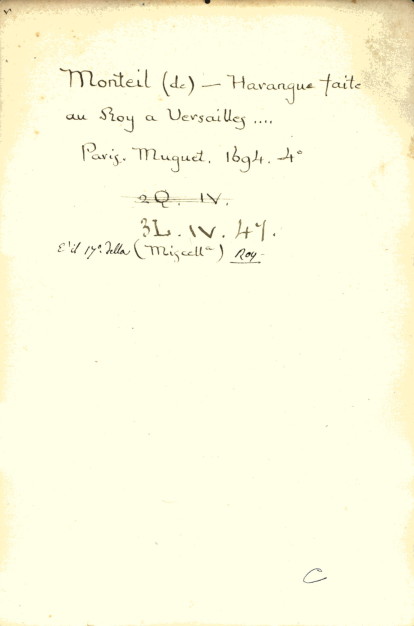 Monteil (de) — Harangue faite
au Roy a Versailles ....
Paris. Muguet. 1694. 4°
2Q. IV.
3L. IV. 47.
E' il 17° della (Miscell^a) Roy.
C